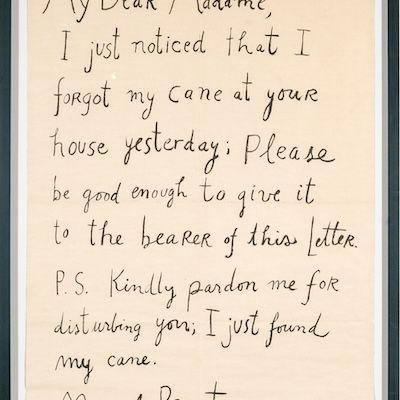 My Dear Madame,
I just noticed that I
forgot my cane at your
house yesterday; Please
be good enough to give it
to the bearer of this Letter.
P.S. Kindly pardon me for
disturbing you; I just found
my cane.